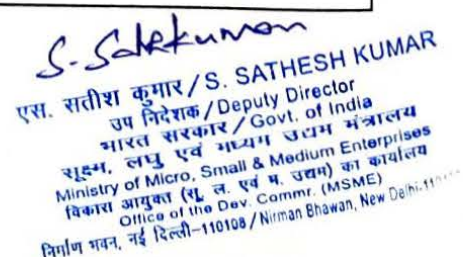 S. Sathekumar
एस. सतीश कुमार / S. SATHESH KUMAR
उप निदेशक / Deputy Director
भारत सरकार / Govt. of India
सूक्ष्म, लघु एवं मध्यम उद्यम मंत्रालय
Ministry of Micro, Small & Medium Enterprises
विकास आयुक्त (सू. ल. एवं म. उद्यम) का कार्यालय
Office of the Dev. Commr. (MSME)
निर्माण भवन, नई दिल्ली-110108 / Nirman Bhawan, New Delhi-11